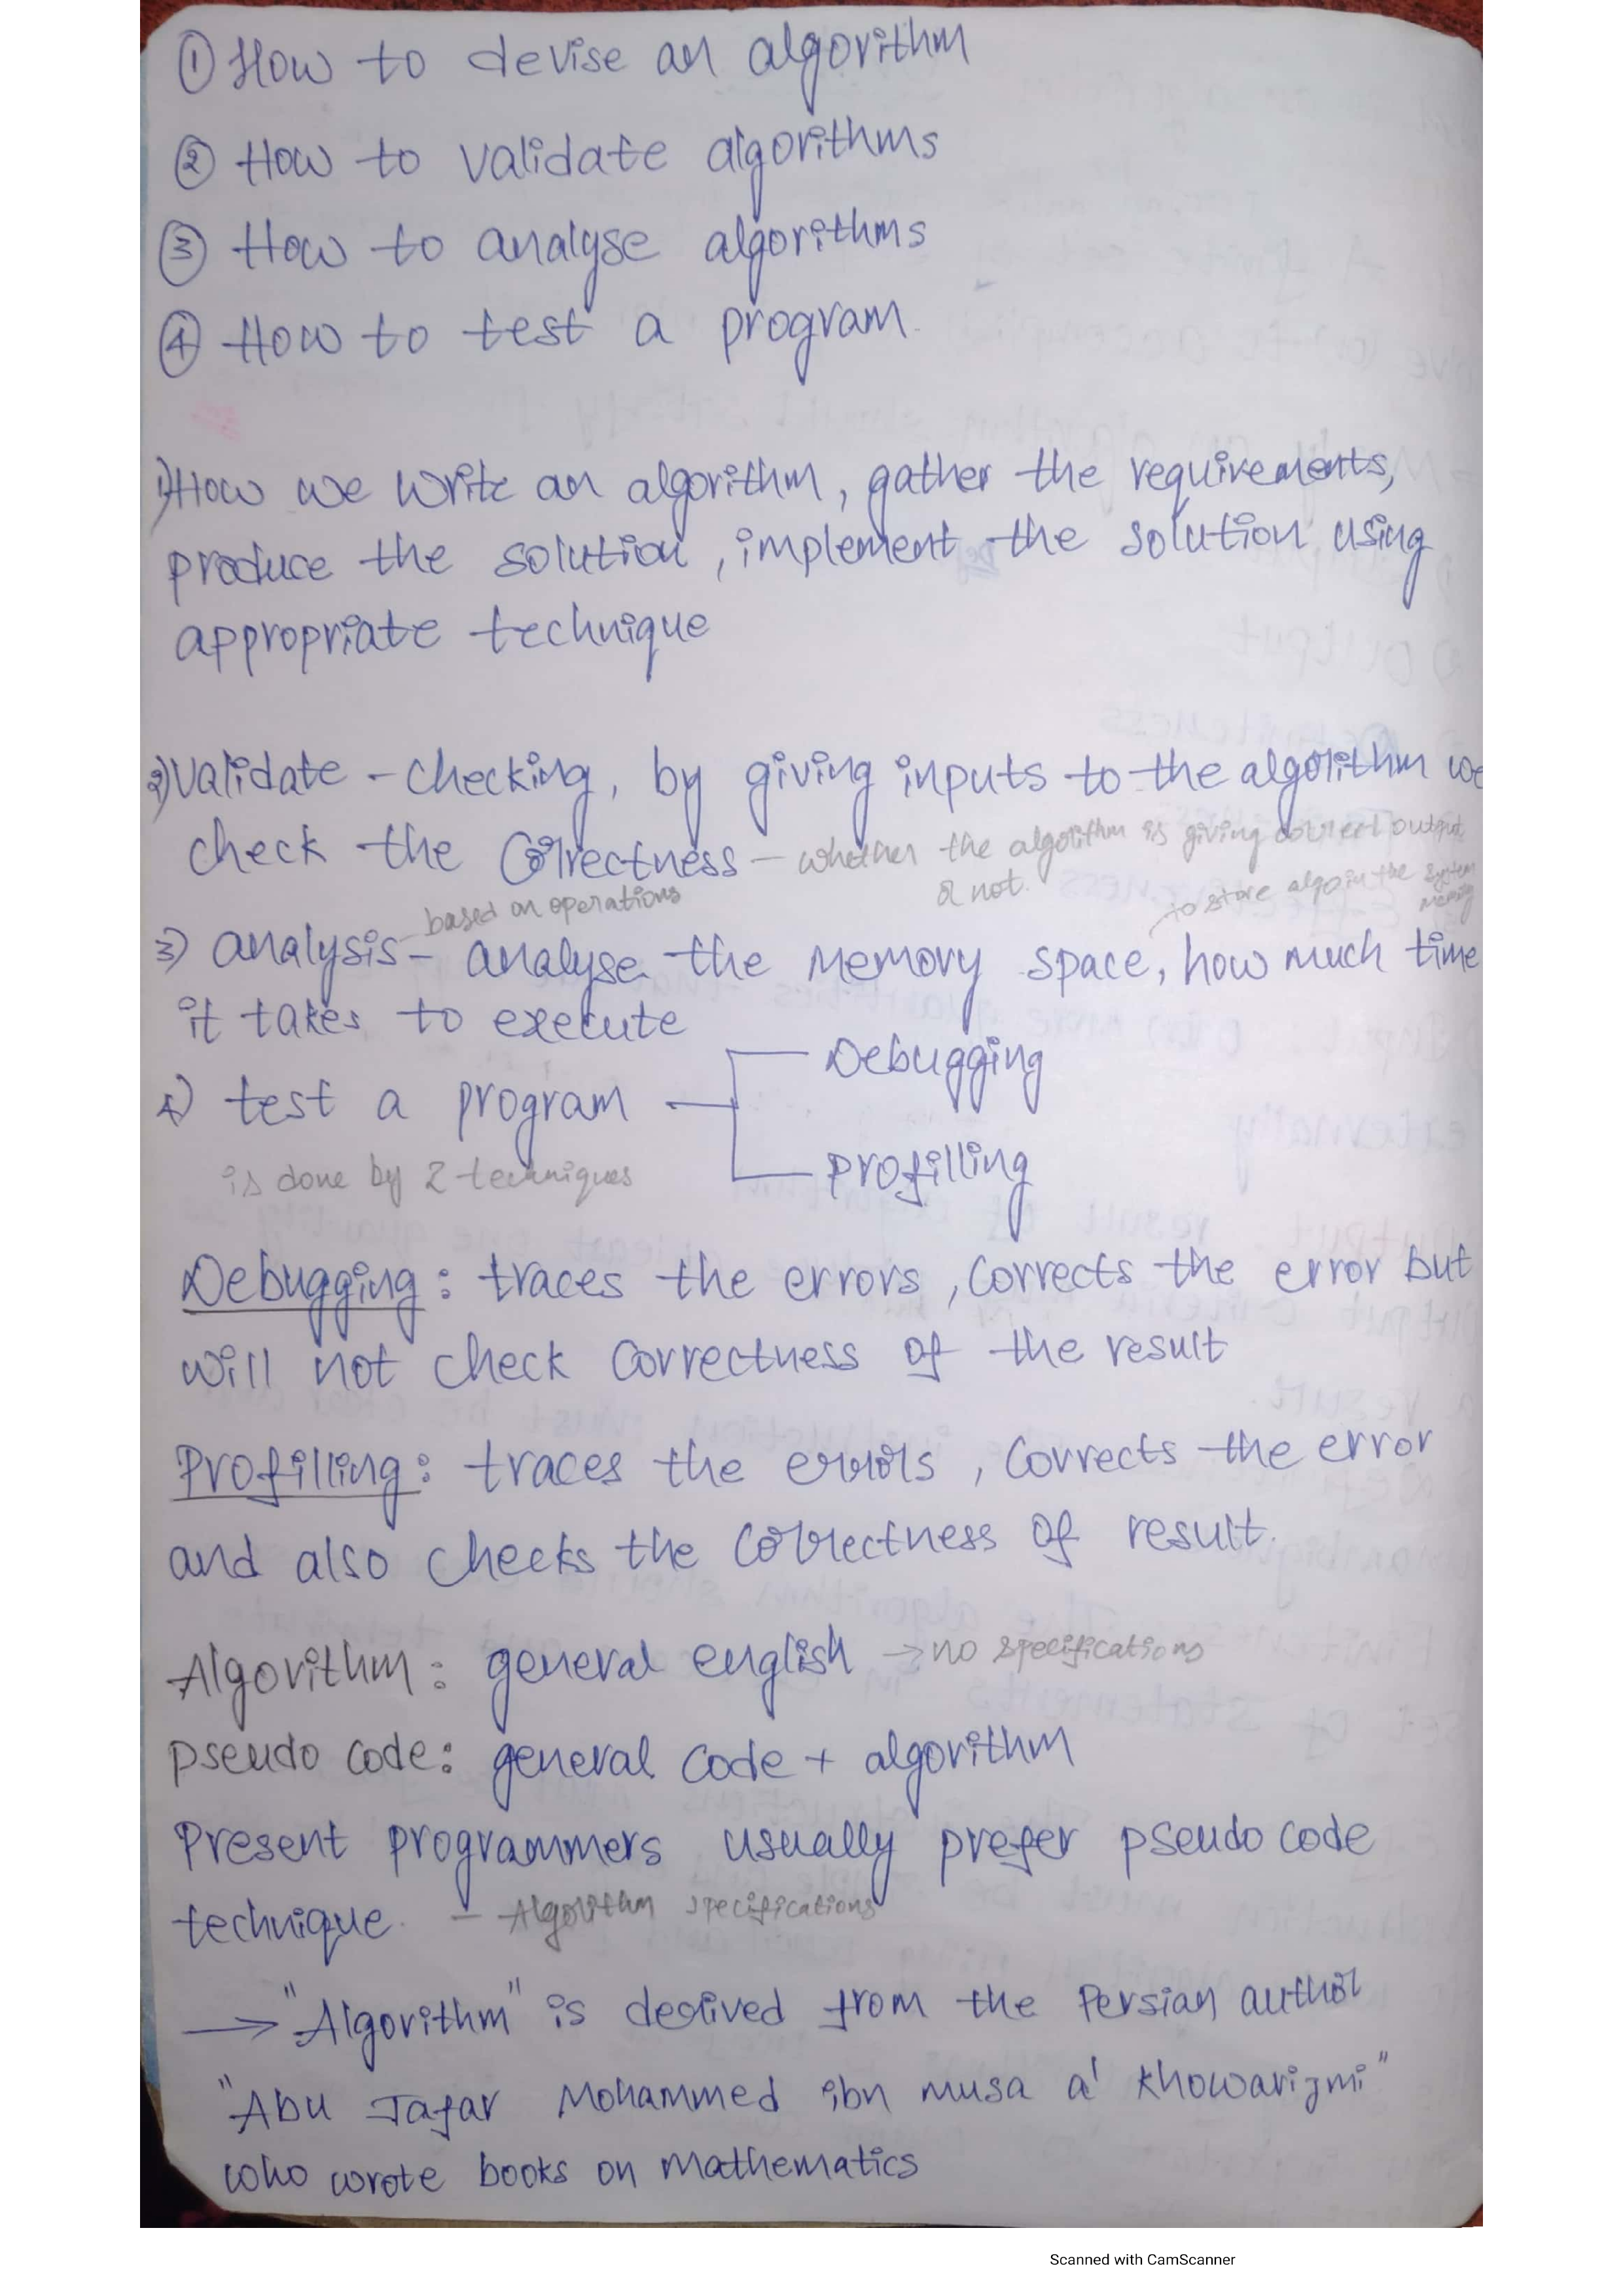 ① How to devise an algorithm
② How to validate algorithms
③ How to analyse algorithms
④ How to test a program.
1) How we write an algorithm, gather the requirements,
produce the solution, implement the solution using
appropriate technique
2) Validate - checking, by giving inputs to the algorithm we
check the correctness — whether the algorithm is giving correct output
or not.
to store algo in the system
memory
based on operations
3) analysis - analyse the memory space, how much time
it takes to execute
4) test a program
Debugging
Profilling
is done by 2 techniques
Debugging: traces the errors, corrects the error but
will not check correctness of the result
Profilling: traces the errors, corrects the error
and also checks the correctness of result.
Algorithm: general english → no specifications
pseudo code: general code + algorithm
Present programmers usually prefer pseudo code
technique. — Algorithm specifications
→ "Algorithm" is derived from the Persian author
"Abu Jafar Mohammed ibn musa al Khowarizmi"
who wrote books on mathematics
Scanned with CamScanner